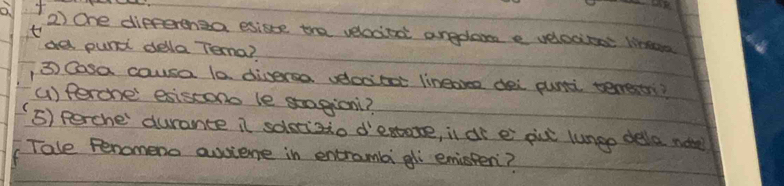 2) Che differenza esiste tra velocità angolare e velocità lineare
dei punti della Terra?
3) Cosa causa la diversa velocità lineare dei punti terrestri?
4) Perché esistono le stagioni?
5) Perche' durante il solstizio d'estate, il dì e' più lungo della notte?
Tale fenomeno avviene in entrambi gli emisferi?